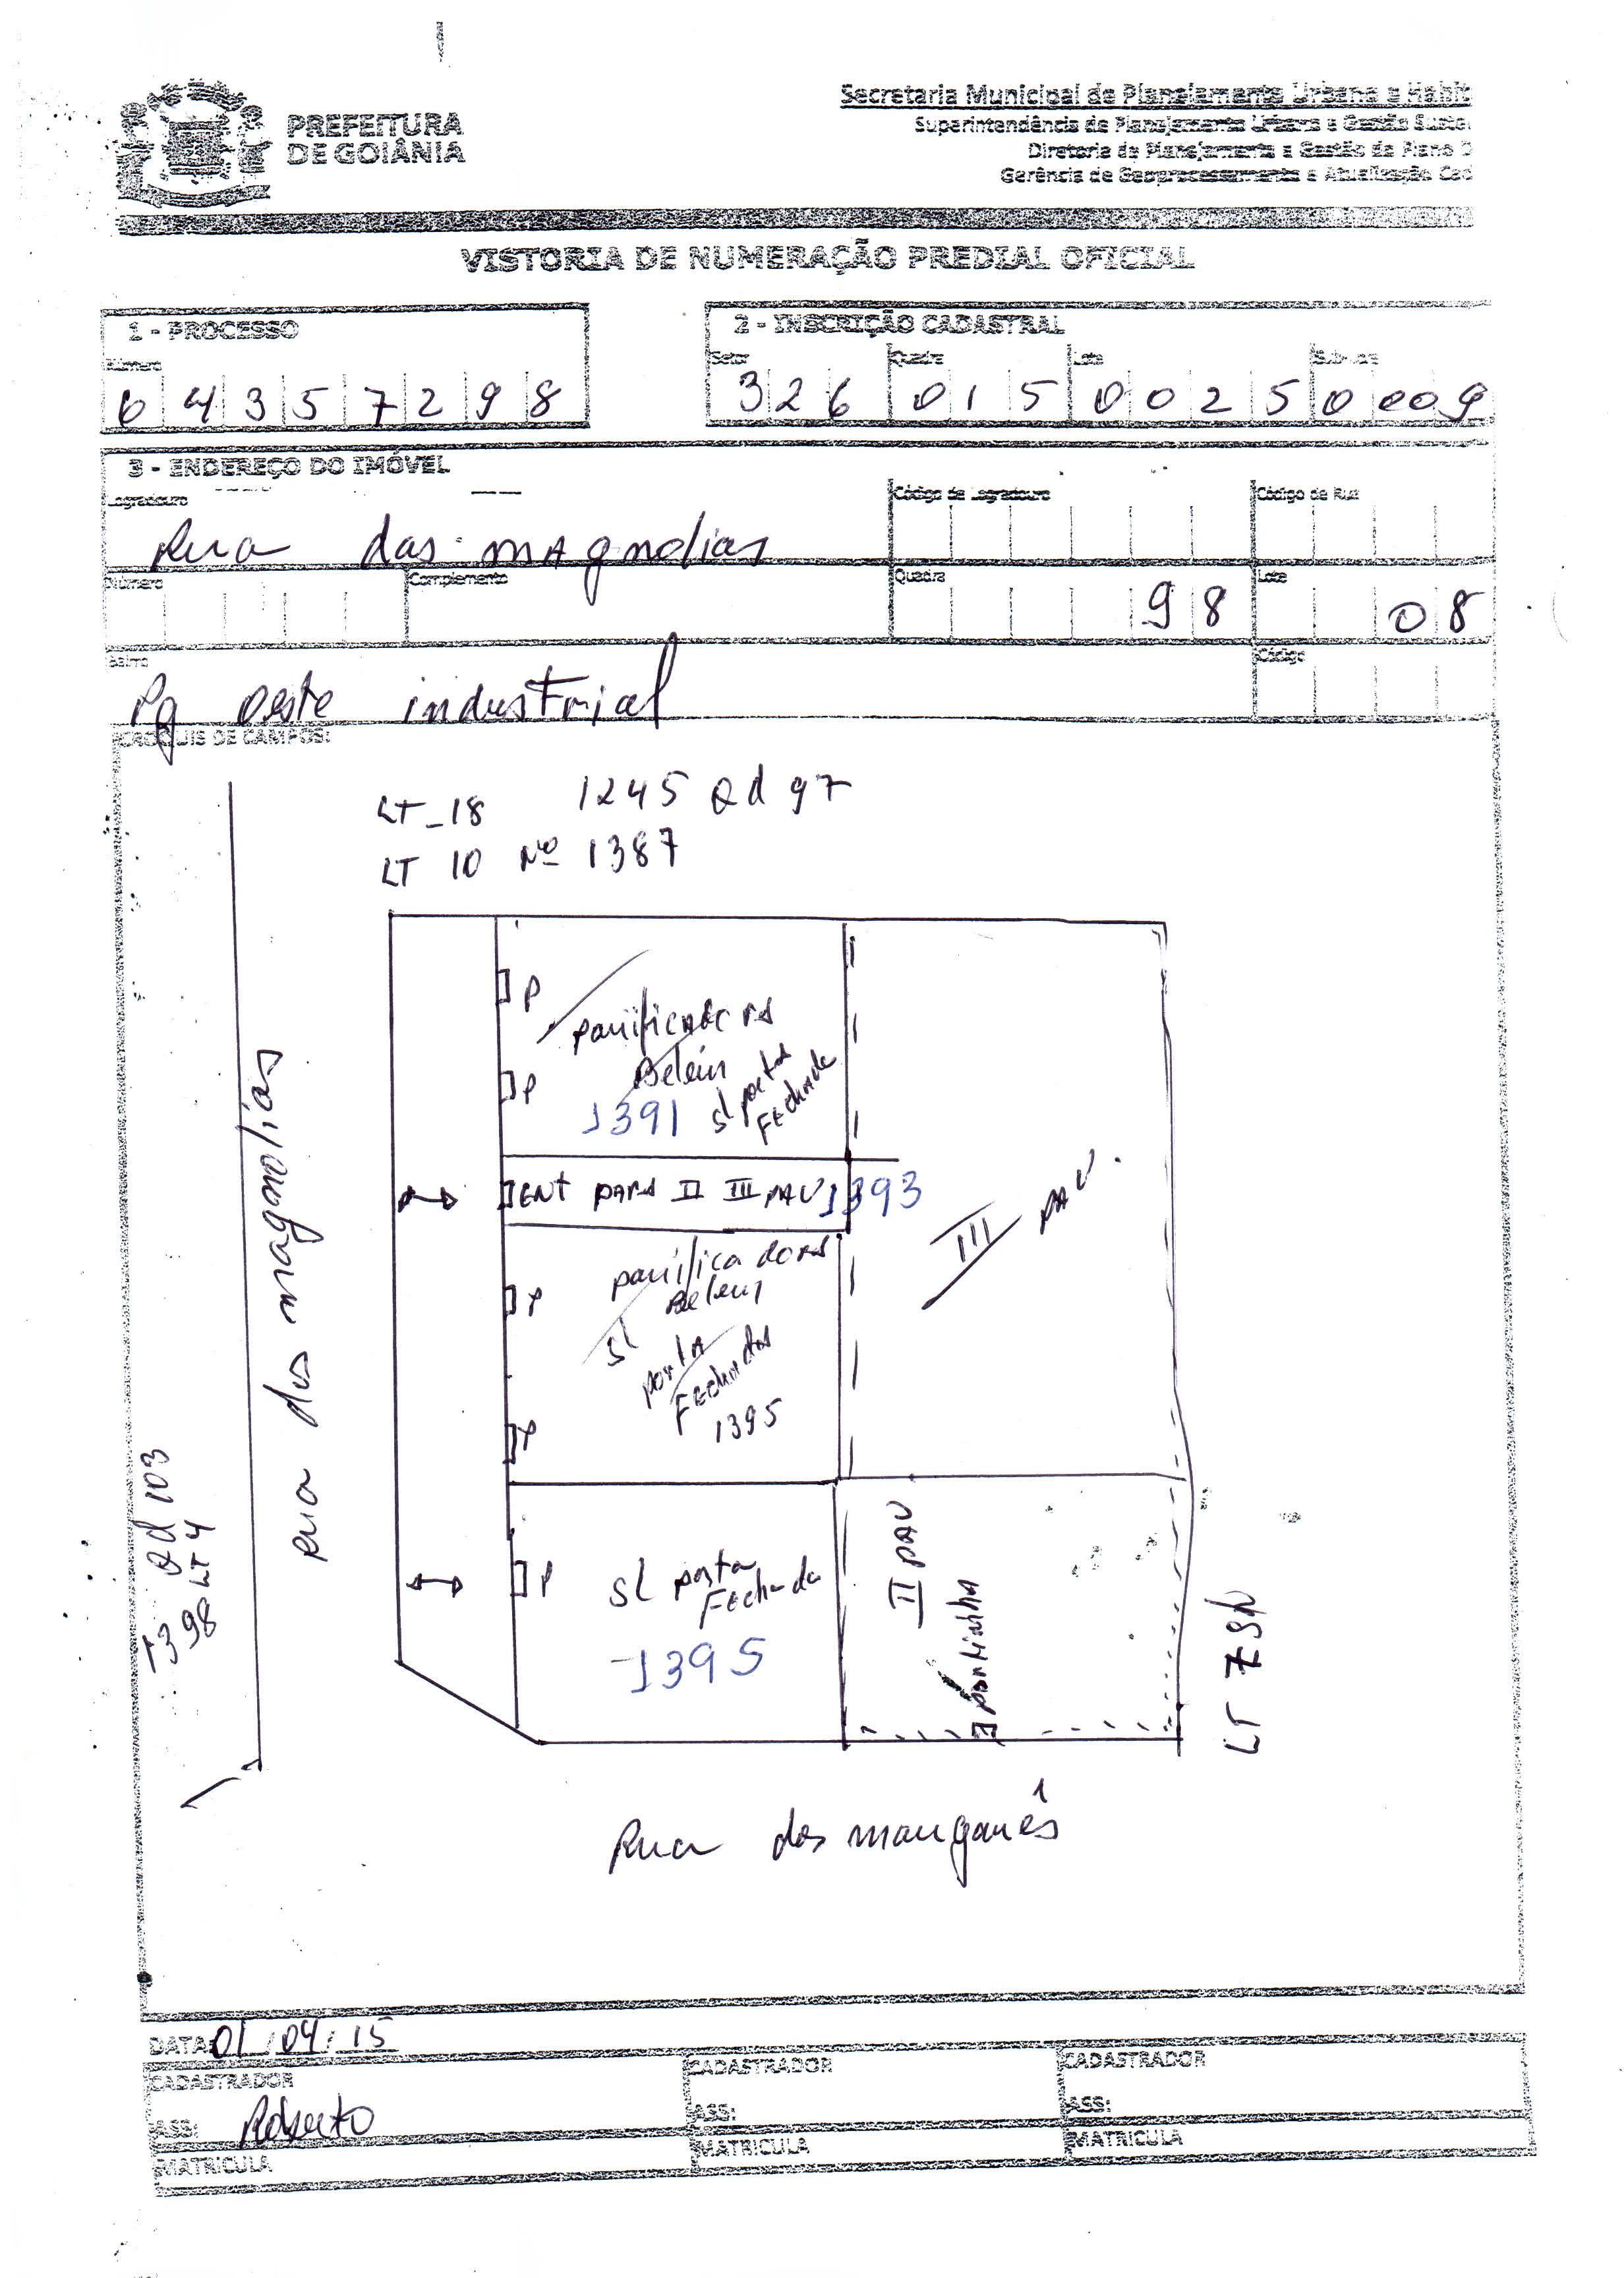 PREFEITURA
DE GOIÂNIA
Secretaria Municipal de Planejamento Urbano e Habit
Superintendência de Planejamento Urbano e Gestão Suste
Diretoria de Planejamento e Gestão do Plano D
Gerência de Geoprocessamento e Atualização Cad
VISTORIA DE NUMERAÇÃO PREDIAL OFICIAL
1 - PROCESSO
Número
6 4 3 5 7 2 9 8
2 - INSCRIÇÃO CADASTRAL
Setor Quadra Lote Sub-Lote
3 2 6 0 1 5 0 0 2 5 0 0 0 0 9
3 - ENDEREÇO DO IMÓVEL
Logradouro Código de Logradouro Código de Rua
Rua das magnolias
Número Complemento Quadra Lote
98 08
Bairro Código
Pq oeste industrial
CROQUIS DE CAMPOS:
LT_18 1245 Qd 97
LT 10 Nº 1387
P
panificadora
Belém
P
sl porta
Fechada
1391
ENT PARA II III PAV 1393
III PAV.
panificadora
Belem
P
sl
porta
Fechadas
1395
P
sl porta
Fechada
P
1395
II PAV
portinha
LT 7 S/N
rua das magnolias
Qd 103
1398 LT 4
Rua dos manganês
DATA: 01/04/15
CADASTRADOR CADASTRADOR CADASTRADOR
ASS: Roberto ASS: ASS:
MATRICULA MATRICULA MATRICULA